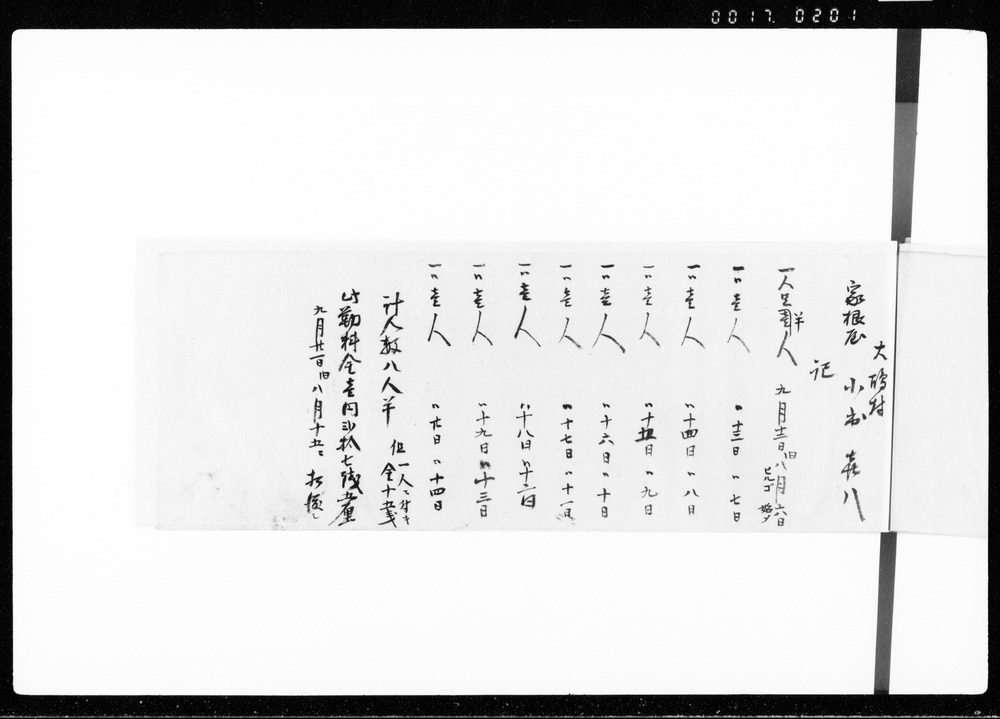 0017 0201
大 村
家根屋 小 喜八
記
一人足 半人 九月十二日 旧八月六日 ヒルゴ 始メ
一〃壱人 〃十三日 〃七日
一〃壱人 〃十四日 〃八日
一〃壱人 〃十五日 〃九日
一〃壱人 〃十六日 〃十日
一〃壱人 〃十七日 〃十一日
一〃壱人 〃十八日 〃十二日
一〃壱人 〃十九日 〃十三日
一〃壱人 〃廿日 〃十四日
計人数八人半 但一人ニ付キ 金十五銭
此勤料金壱円弐拾七銭五厘
九月廿一日旧八月十五日